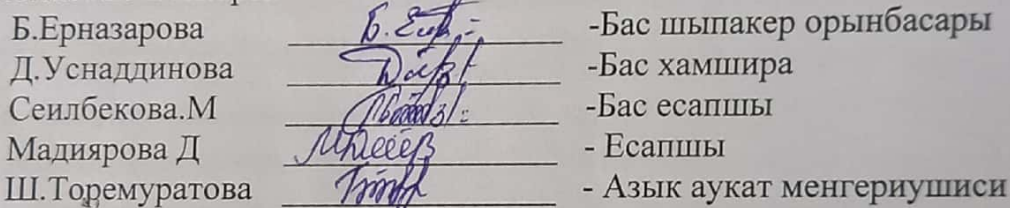 Б.Ерназарова -Бас шыпакер орынбасары
Д.Уснаддинова -Бас хамшира
Сеилбекова.М -Бас есапшы
Мадиярова Д - Есапшы
Ш.Торемуратова - Азык аукат менгериушиси